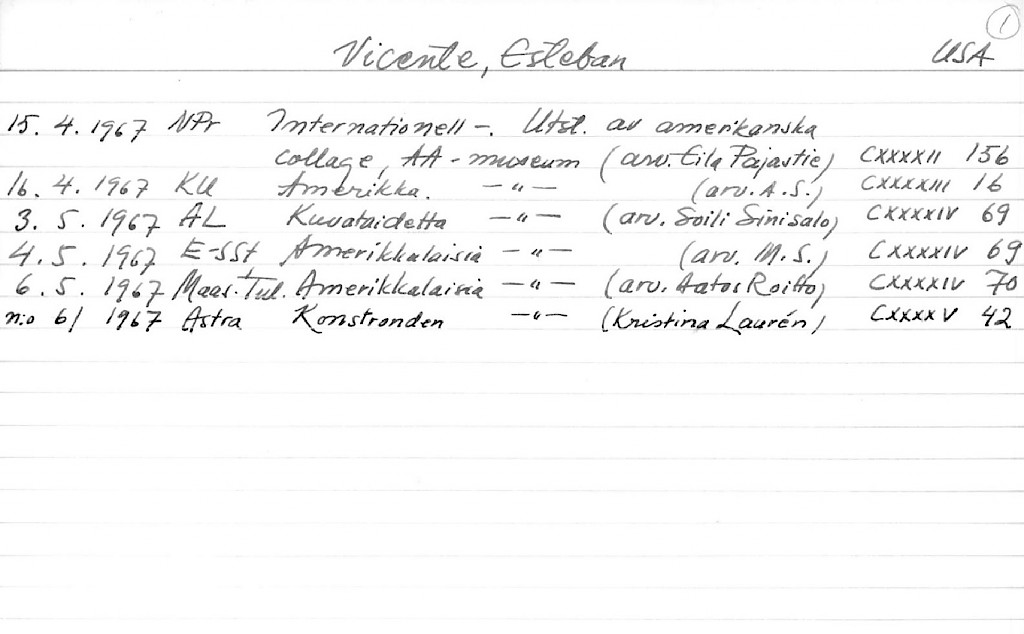 1
Vicente, Esteban USA
15. 4. 1967 NPr Internationell -. Utst. av amerikanska
collage, AA-museum (arv. Eila Pajastie) CXXXXII 156
16. 4. 1967 KU Amerikka. -"- (arv. A.S.) CXXXXIII 16
3. 5. 1967 AL Kuvataidetta -"- (arv. Soili Sinisalo) CXXXXIV 69
4. 5. 1967 E-SSt Amerikkalaisia -"- (arv. M.S.) CXXXXIV 69
6. 5. 1967 Maas. Tul. Amerikkalaisia -"- (arv. Aatos Roitto) CXXXXIV 70
n:o 6/ 1967 Astra Konstronden -"- (Kristina Laurén) CXXXXV 42